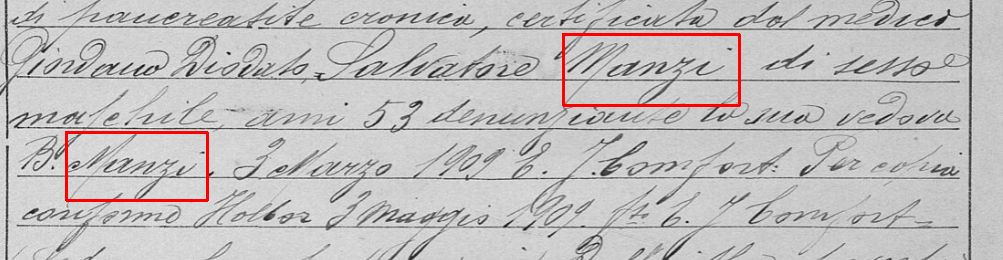 di pancreatite cronica, certificata dal medico
Giordano Diodato, Salvatore Manzi di sesso
maschile, anni 53 denunziante la sua vedova
B. Manzi. 3 Marzo 1909 E. J. Comfort. Per copia
conforme 3 Maggio 1909. fto E. J Comfort